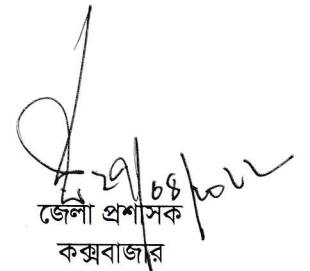 ২৭/০৪/২০২২
জেলা প্রশাসক
কক্সবাজার